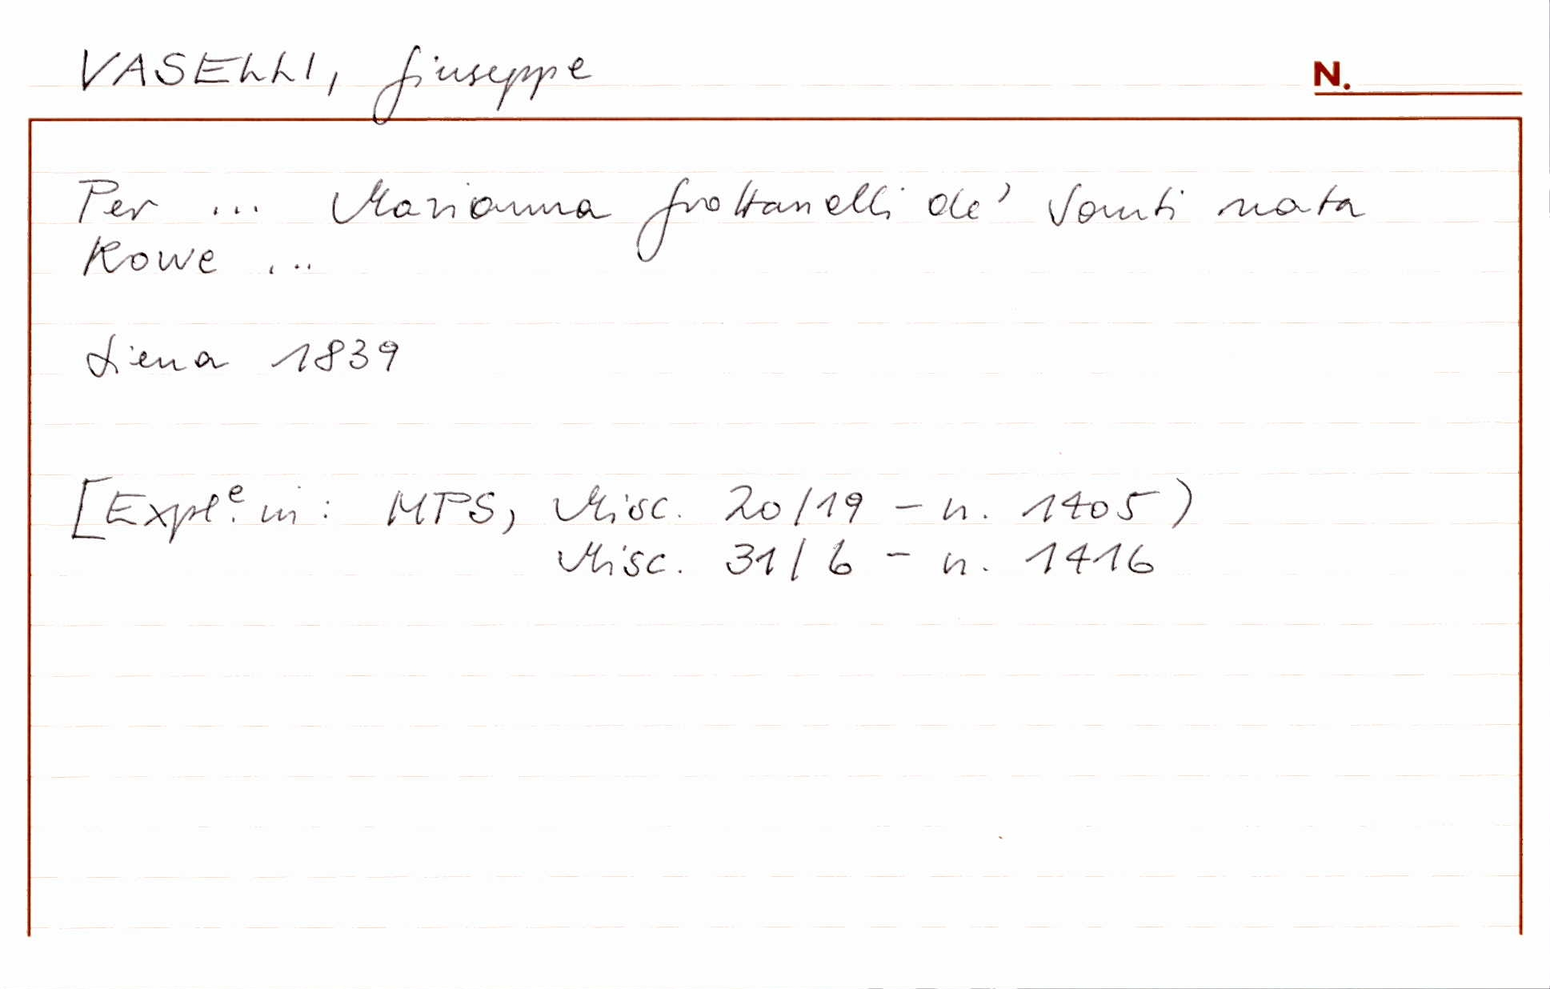 VASELLI, Giuseppe
N.
Per ... Marianna Grottanelli de' Santi nata
Rowe ...
Siena 1839
[Expl.e in: MPS, Misc. 20/19 - n. 1405)
Misc. 31/6 - n. 1416